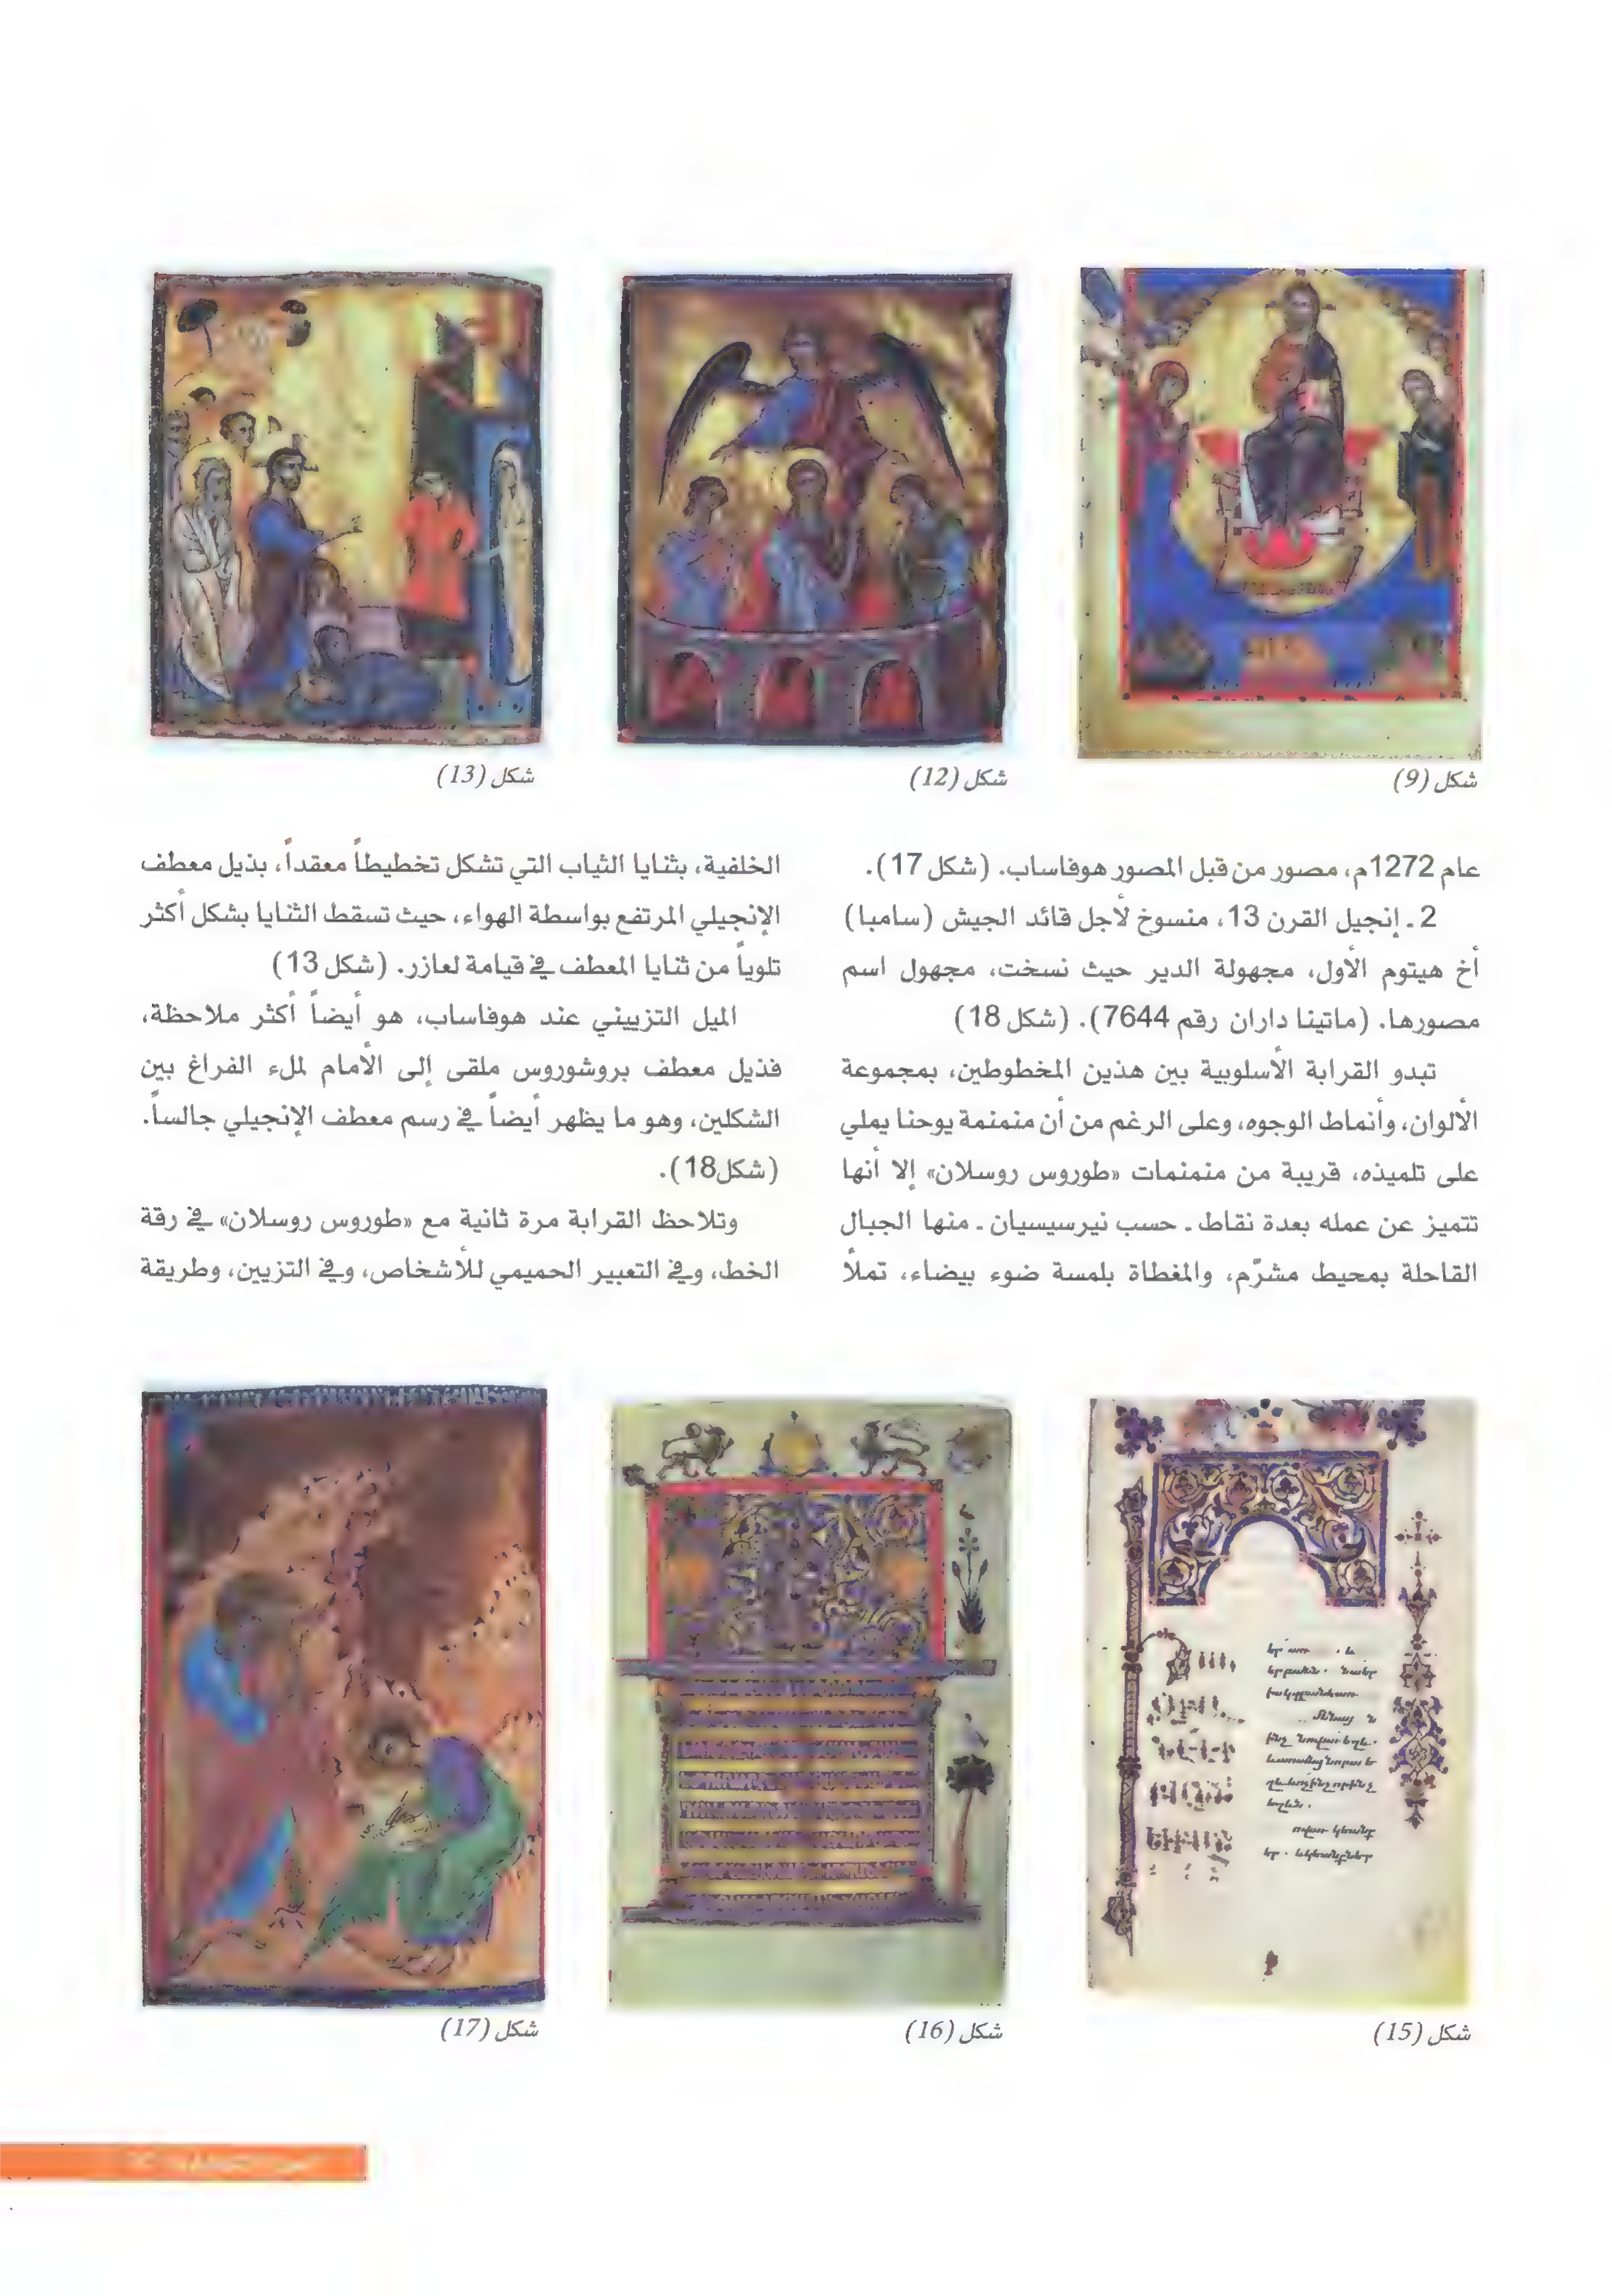 شكل (9)
شكل (12)
شكل (13)
عام 1272م، مصور من قبل المصور هوفاساب. (شكل 17).
2 ـ إنجيل القرن 13، منسوخ لأجل قائد الجيش (سامبا)
أخ هيتوم الأول، مجهولة الدير حيث نسخت، مجهول اسم
مصورها. (ماتينا داران رقم 7644). (شكل 18)
تبدو القرابة الأسلوبية بين هذين المخطوطين، بمجموعة
الألوان، وأنماط الوجوه، وعلى الرغم من أن منمنمة يوحنا يملي
على تلميذه، قريبة من منمنمات «طوروس روسلان» إلا أنها
تتميز عن عمله بعدة نقاط ـ حسب نيرسيسيان ـ منها الجبال
القاحلة بمحيط مشرّم، والمغطاة بلمسة ضوء بيضاء، تملأ
الخلفية، بثنايا الثياب التي تشكل تخطيطاً معقداً، بذيل معطف
الإنجيلي المرتفع بواسطة الهواء، حيث تسقط الثنايا بشكل أكثر
تلوياً من ثنايا المعطف في قيامة لعازر. (شكل 13)
الميل التزييني عند هوفاساب، هو أيضاً أكثر ملاحظة،
فذيل معطف بروشوروس ملقى إلى الأمام لملء الفراغ بين
الشكلين، وهو ما يظهر أيضاً في رسم معطف الإنجيلي جالساً.
(شكل18).
وتلاحظ القرابة مرة ثانية مع «طوروس روسلان» في رقة
الخط، وفي التعبير الحميمي للأشخاص، وفي التزيين، وطريقة
شكل (15)
شكل (16)
شكل (17)